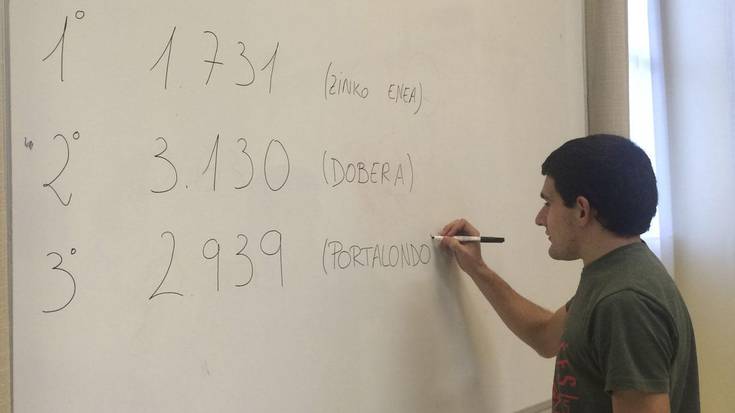 1° 1.731 (ZINKO ENEA)
2° 3.130 (DOBERA)
3° 2.939 (PORTALONDO